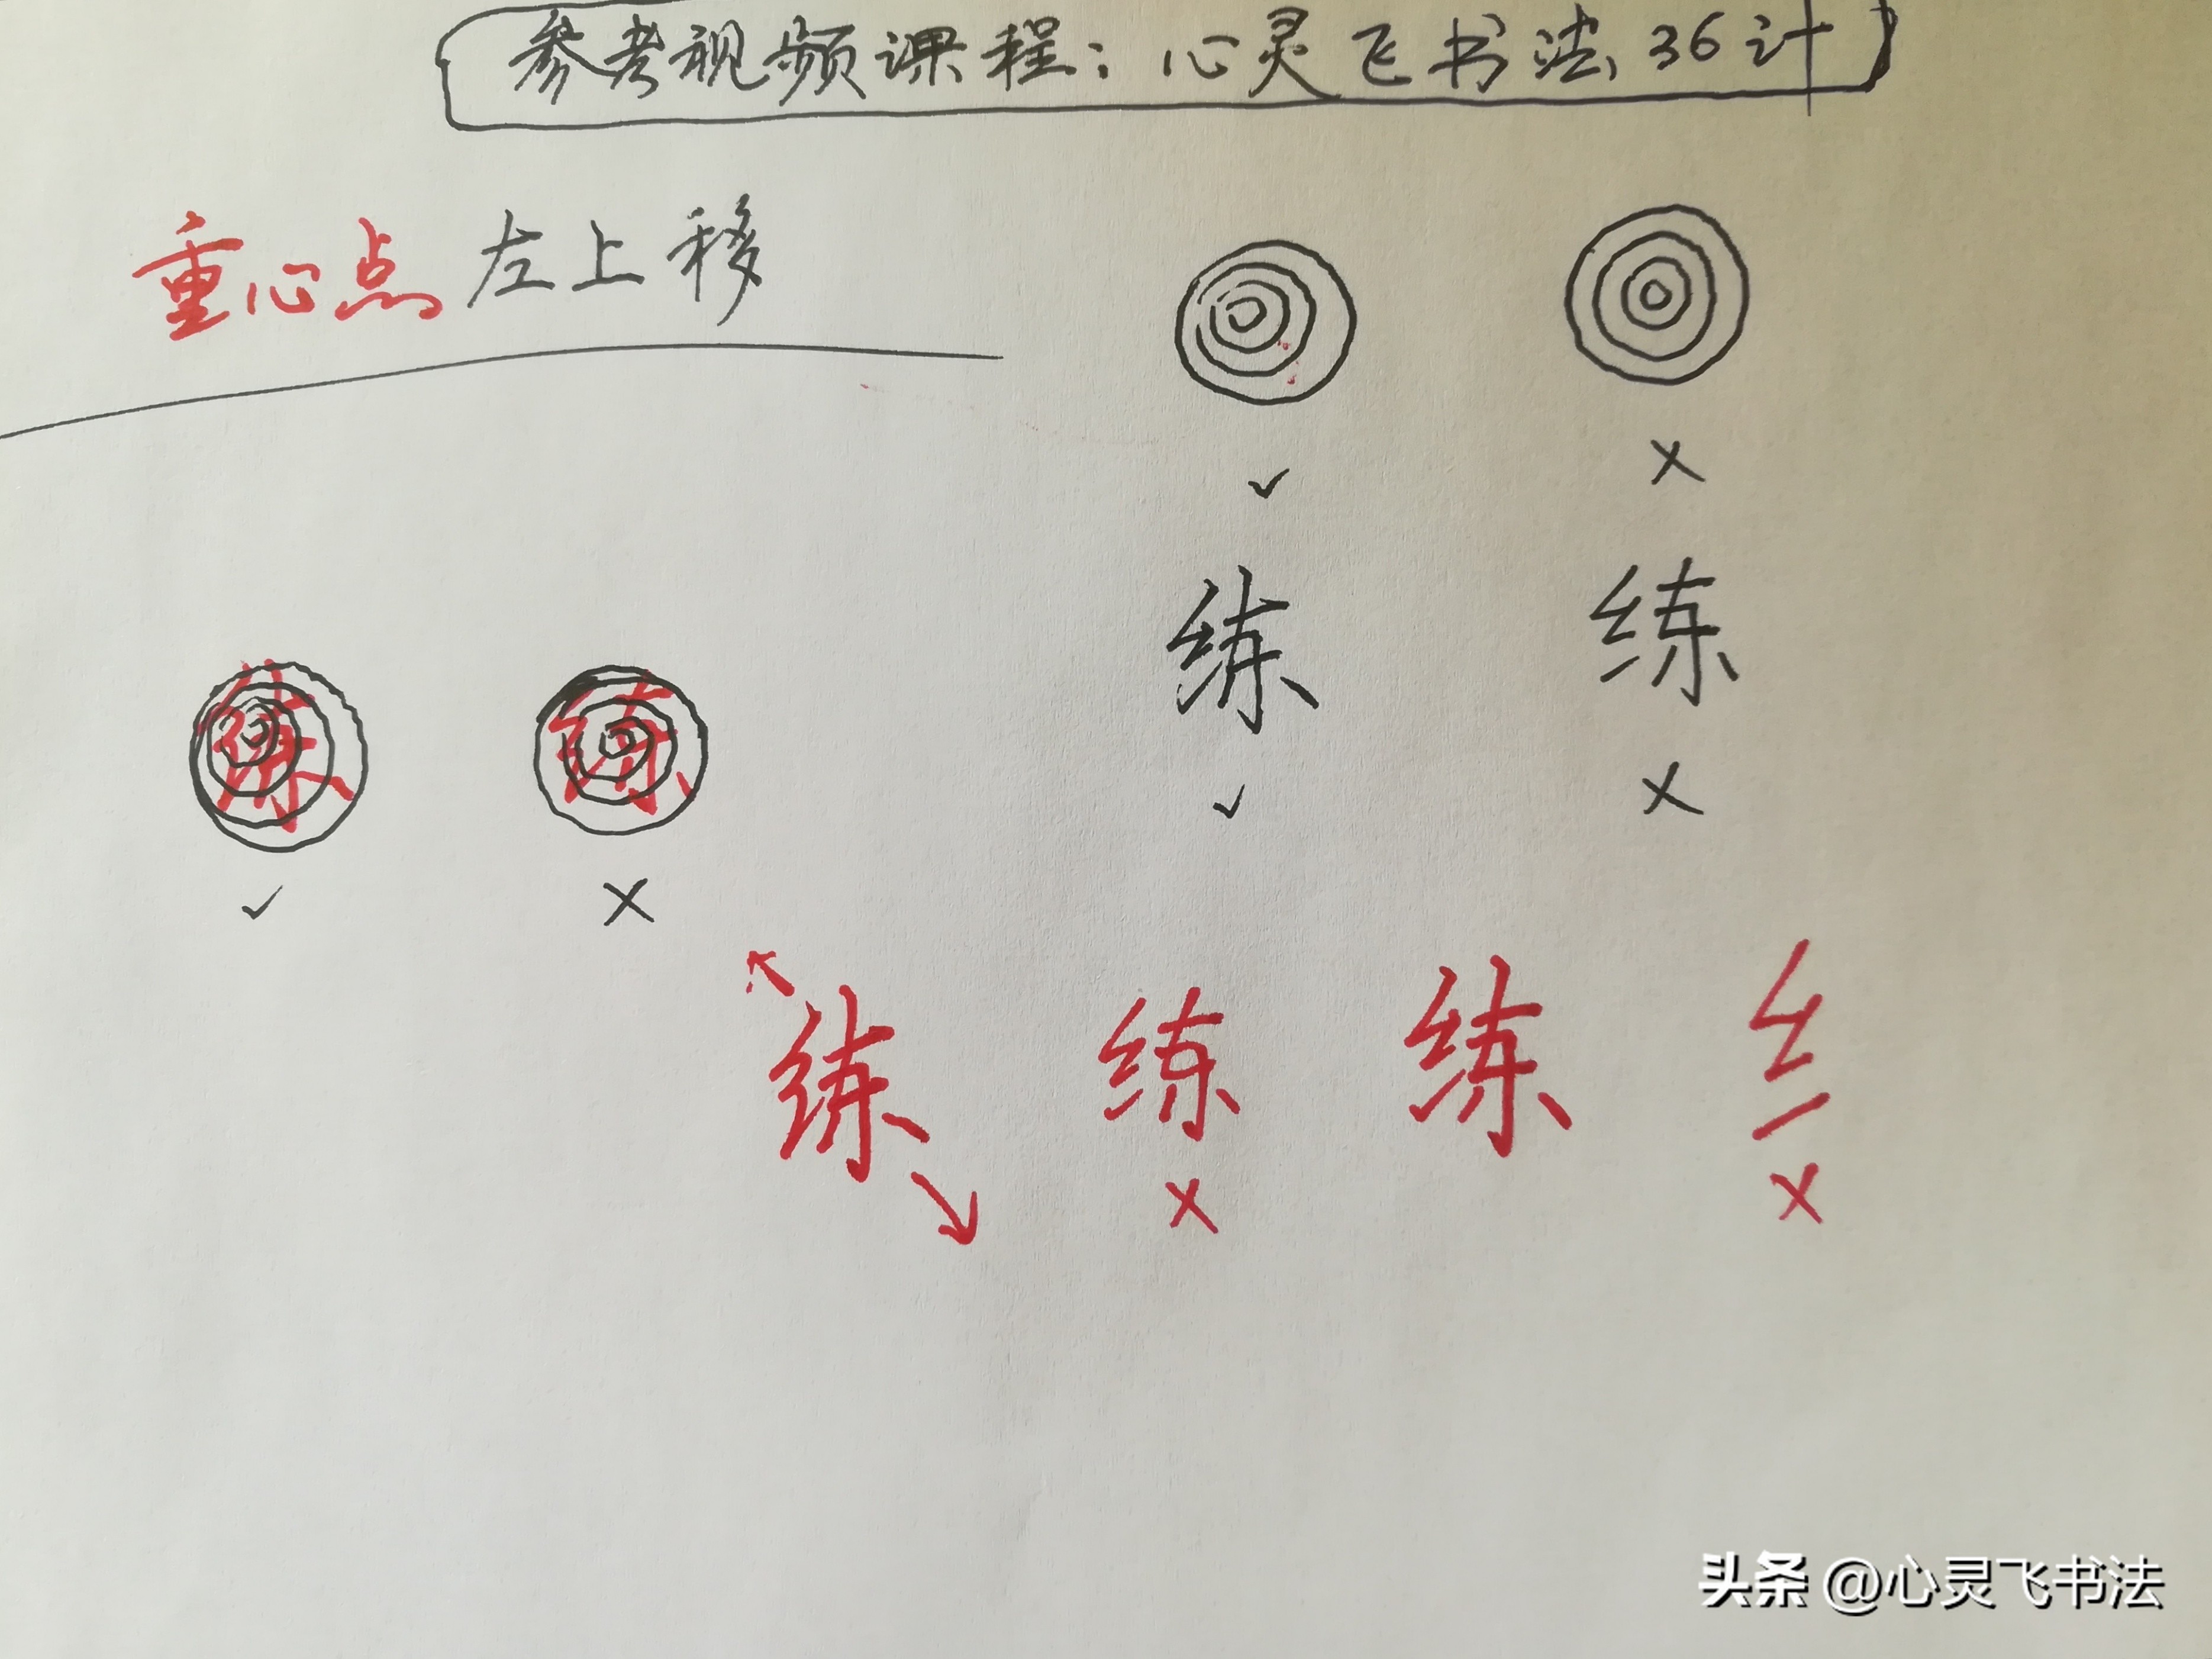 参考视频课程：心灵飞书法36计
重心点左上移
✓ ×
练 练
✓ ×
练 练
✓ ×
练 练 练 纟
× ×
头条 @心灵飞书法